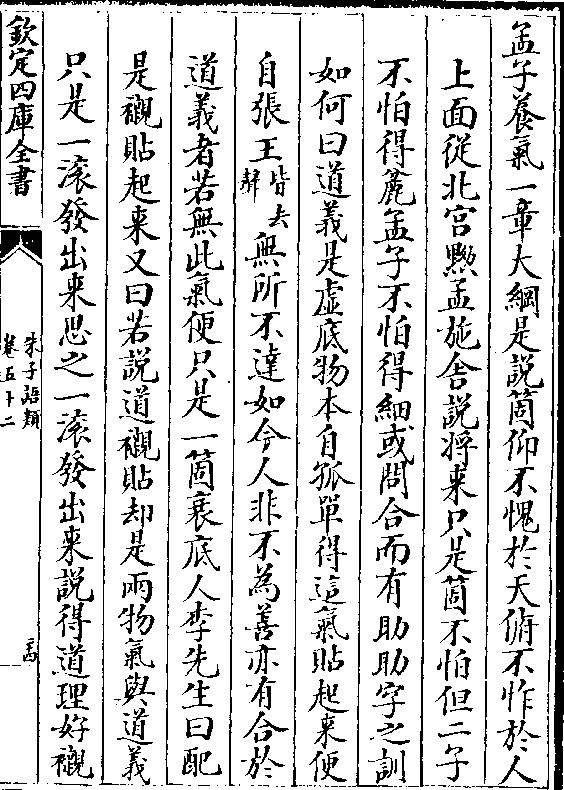 孟子養氣一章大綱是說箇仰不愧於天俯不怍於人
上面從北宮黝孟施舍說將來只是箇不怕但二子
不怕得麄孟子不怕得細或問合而有助助字之訓
如何曰道義是虛底物本自孤單得這氣貼起來便
自張王皆去聲無所不達如今人非不為善亦有合於
道義者若無此氣便只是一箇衰底人李先生曰配
是襯貼起來又曰若說道襯貼却是兩物氣與道義
只是一滚發出來思之一滚發出來說得道理好襯
欽定四庫全書
朱子語類
卷五十二